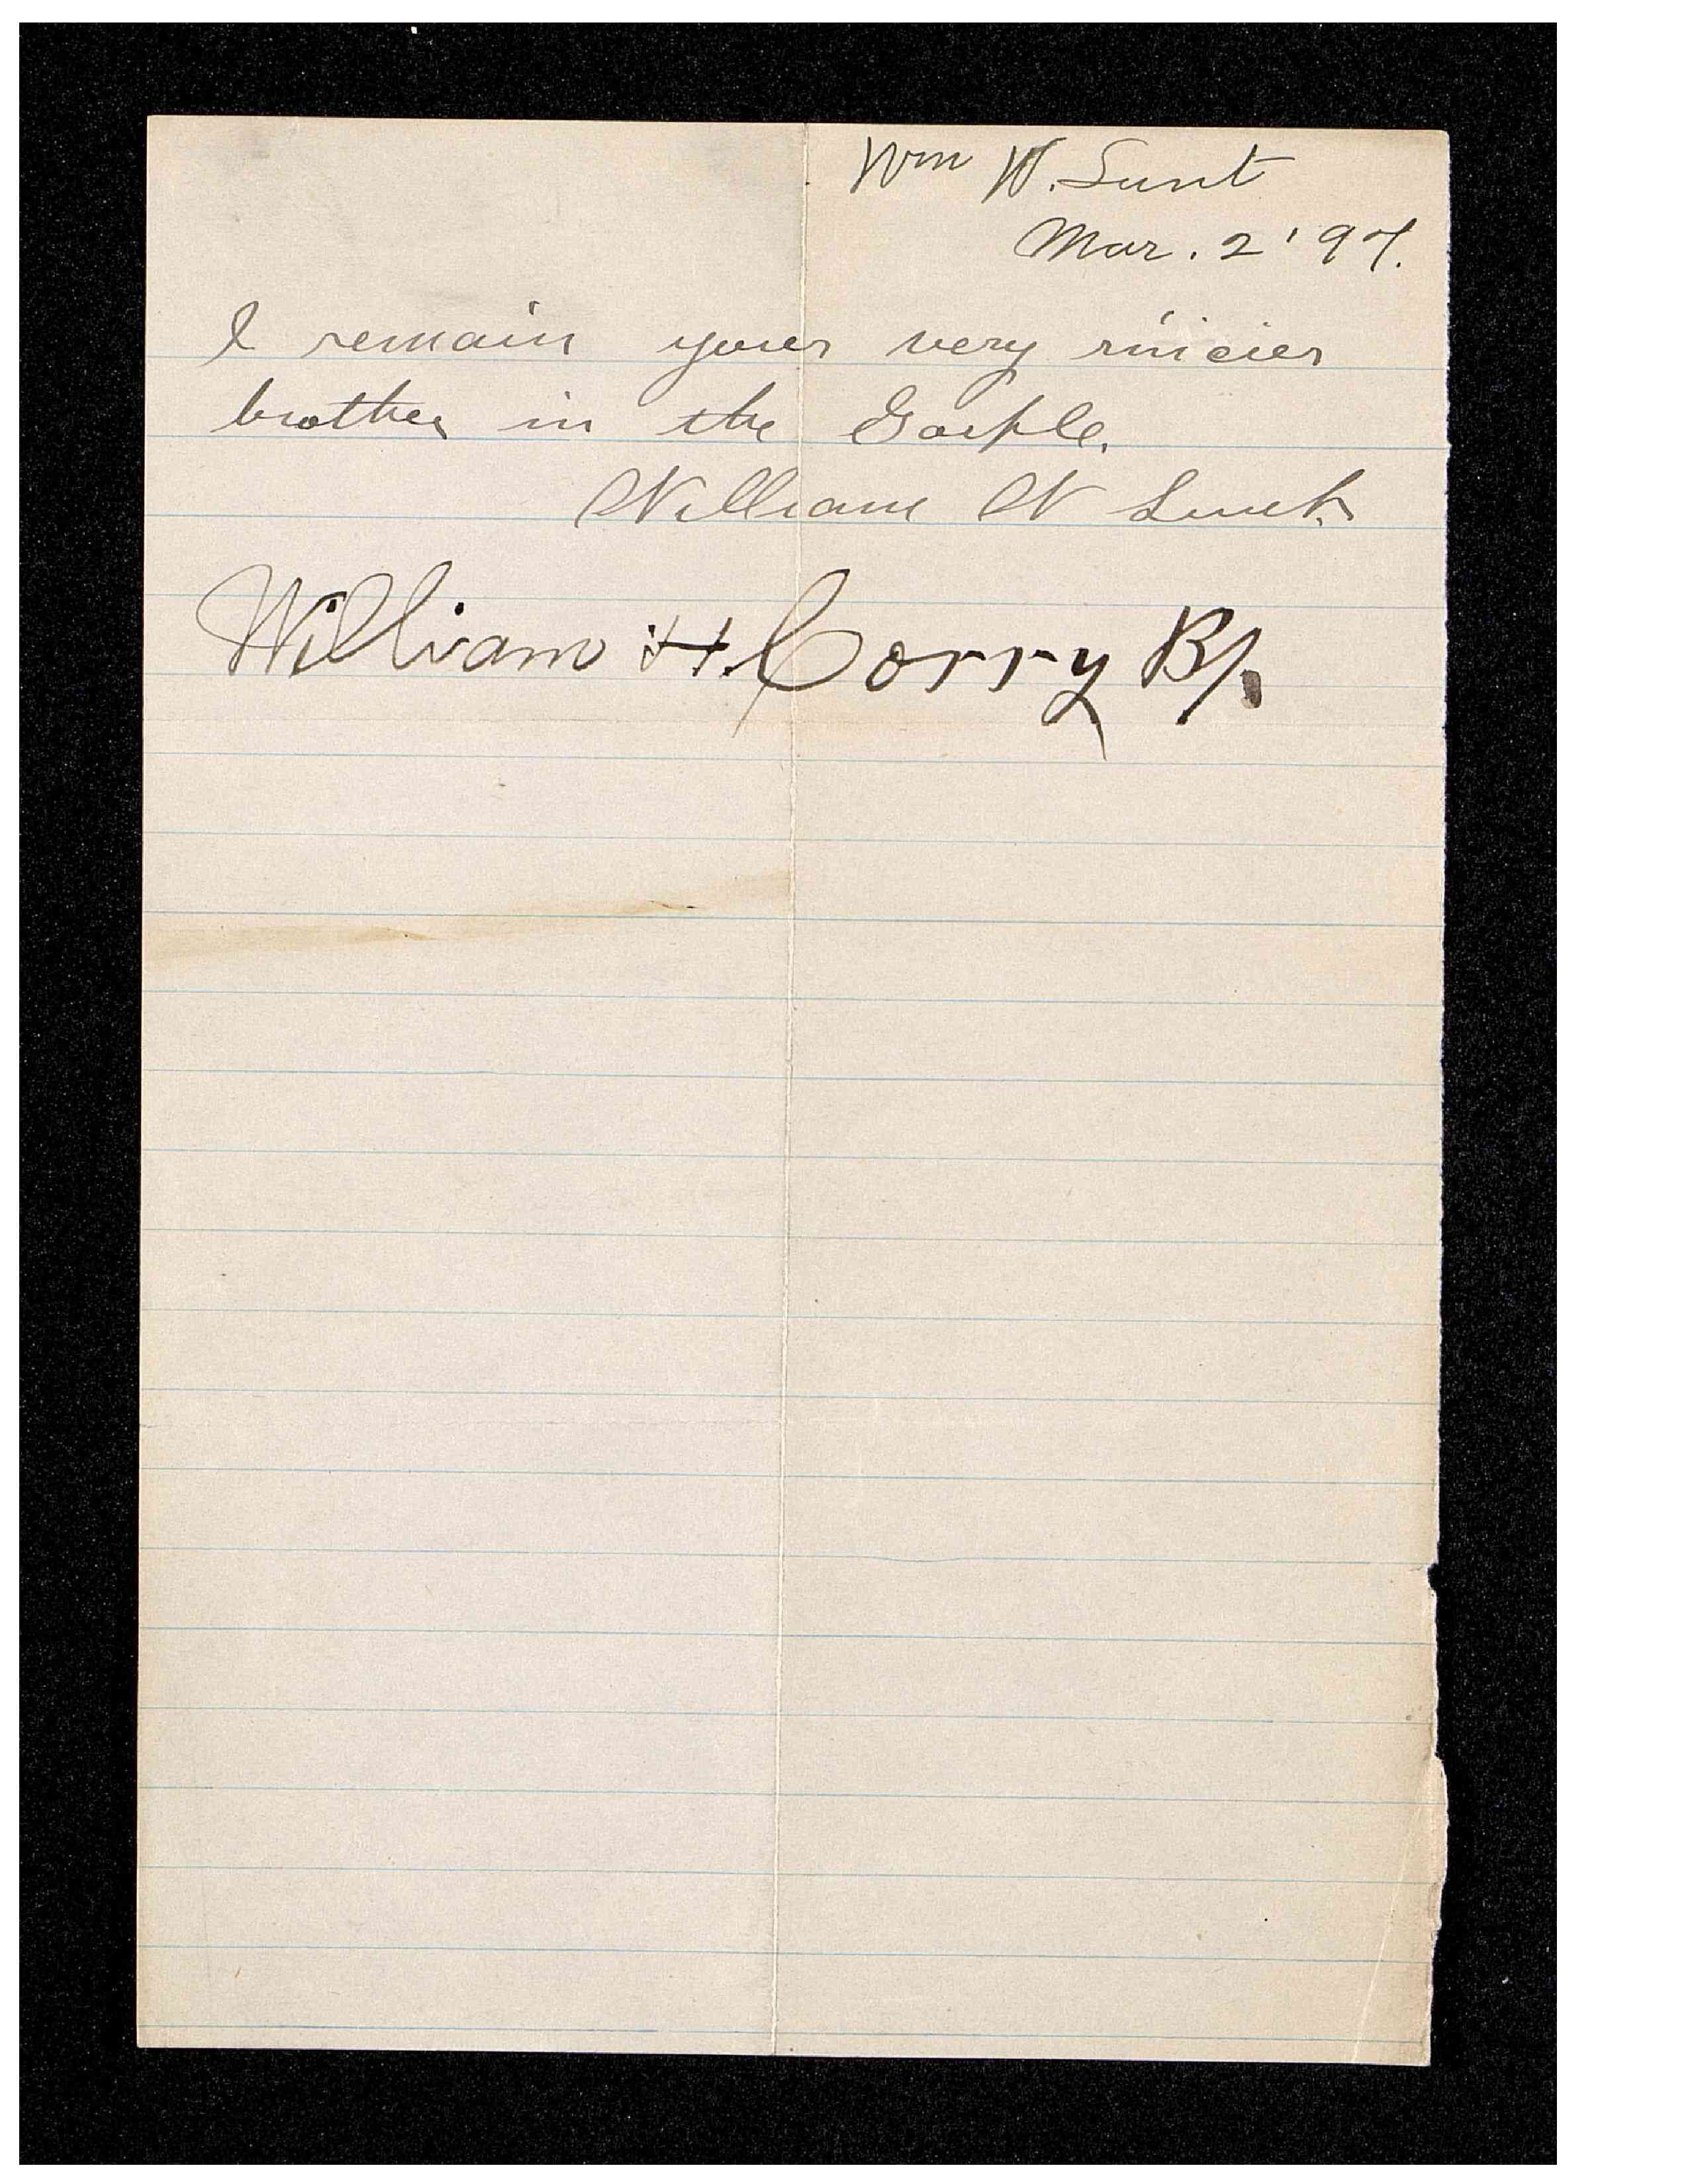 Wm W. Lunt
Mar. 2 '97.
I remain your very sincier
brother in the Gosple.
William W Lunt.
William H. Corry Bp.